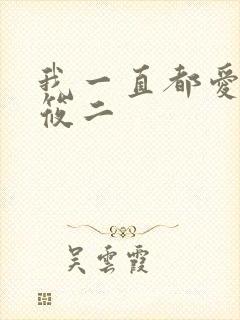 我一直都愛
筱二
吳雲霞